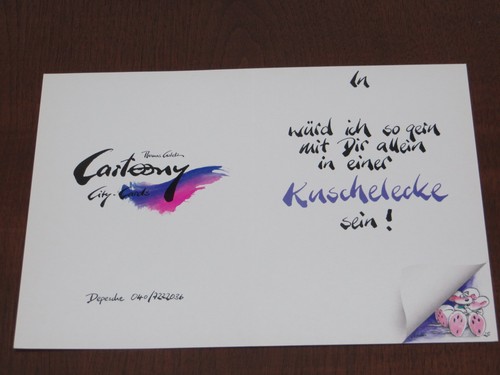 Cartoony
City-Cards
Depesche 040/7222086
In
würd ich so gern
mit Dir allein
in einer
Kuschelecke
sein!